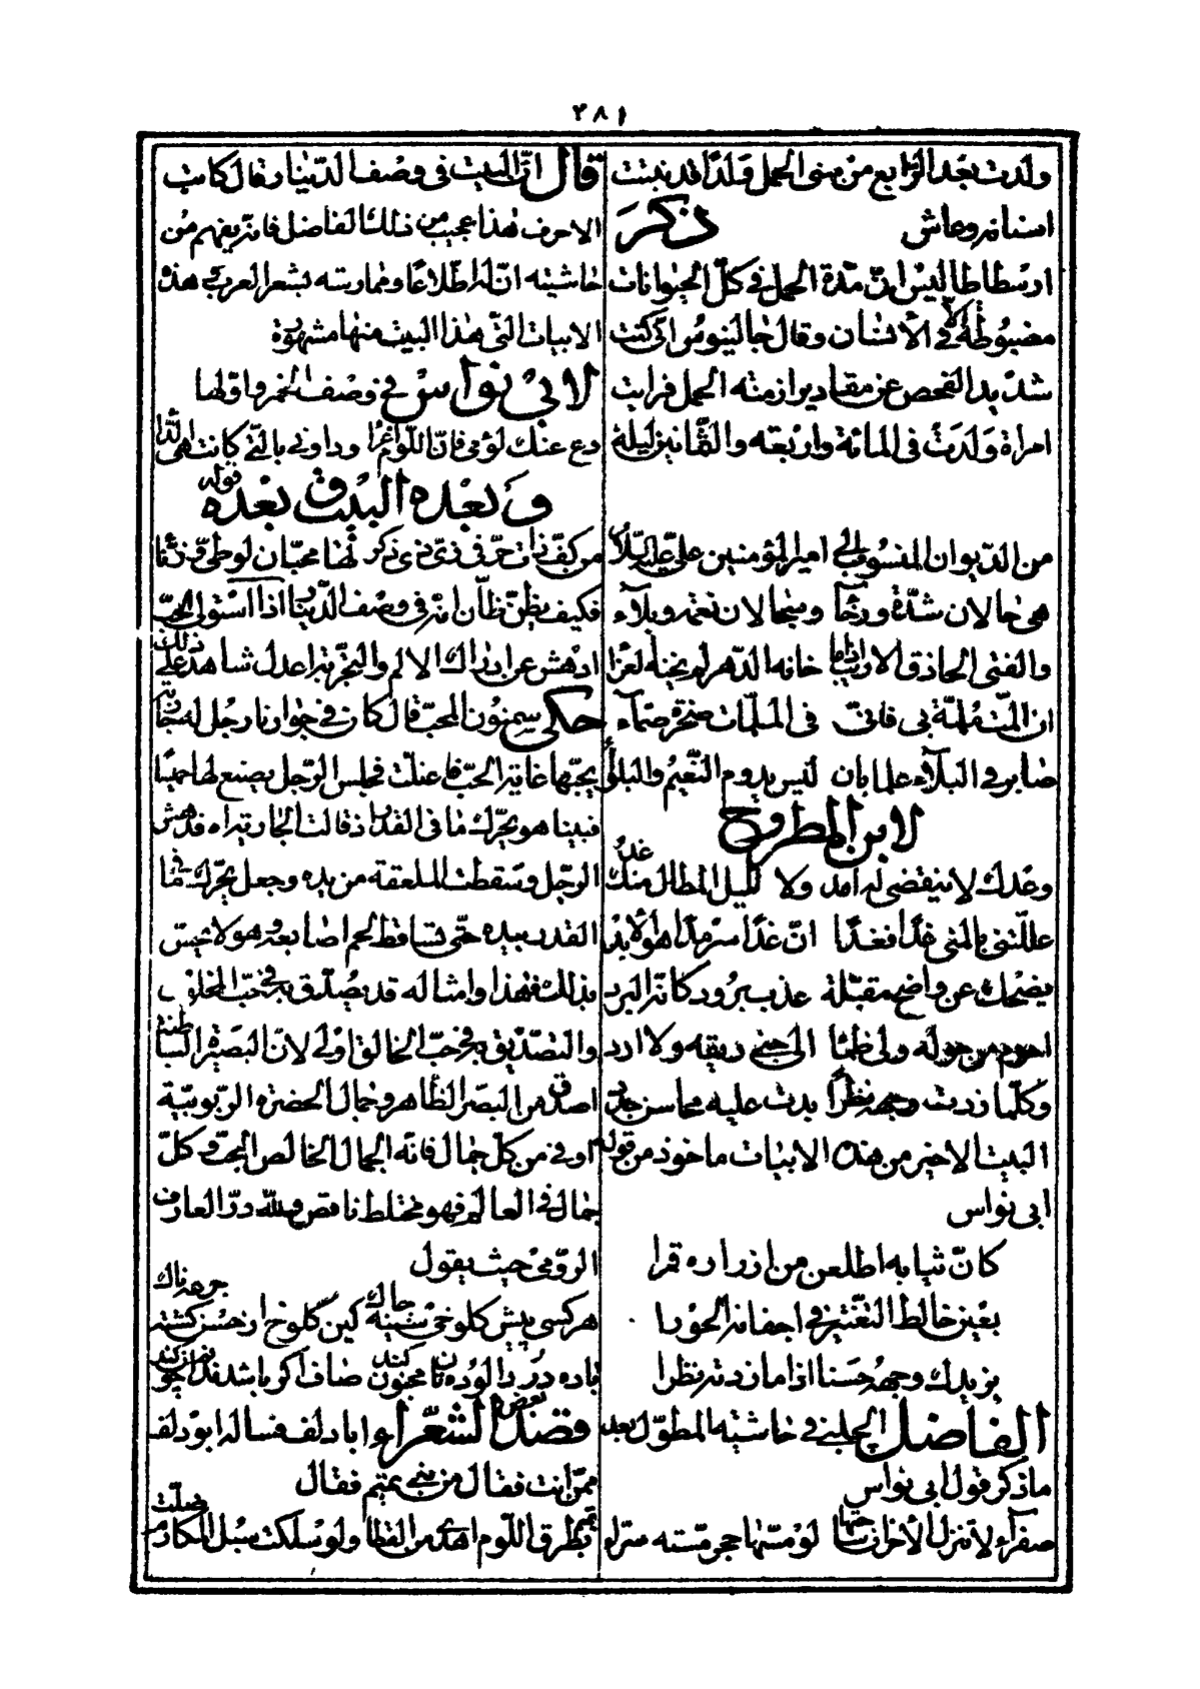 ٢٨١
ولدت بعد الرابع من سنى الحمل ولدا قد نبتت
اسنانه وعاش ذكر
ارسطاطاليس ان مدة الحمل في كل الحيوانات
مضبوطة الا في الانسان وقال جالينوس اني كنت
شديد الفحص عن مقادير ازمنه الحمل فرايت
امراة ولدت في المائة واربعه والثمانين ليلة
من الديوان المنسوب الى امير المؤمنين علي عليه السلام
هي حالان شدة ورخآ وسجالان نعمه وبلآء
والفتى الحاذق الاريب اذا ما خانه الدهر لم يخنه لعزا
ان المت ملمة بي فاني في الملمات صخرة صمآء
صابر في البلآء علما بان ليس يدوم النعيم والبلوى
لابن المطروح
وعدك لا ينقضي له امد ولا لليل المطال منك غد
عللتني بالمنى غدا فغدا ان غدا سرمدا هو الابد
يضحك عن واضح مقبله عذب برود كانه البرد
احوم من حوله ولى ظمأ الى جنى ريقه ولا ارد
وكلما زدت وجهه نظرا بدت عليه محاسن جدد
البيت الاخير من هذه الابيات ماخوذ من قول
ابى نواس
كان ثيابه اطلعن من ازراره قمرا
بعين خالط التفتير في اجفانه الحورا
يزيدك وجهه حسنا اذا ما زدته نظرا
الفاضل الچلبي في حاشيته المطول بعد
ما ذكر قول ابى نواس
صفرآء لا تنزل الاحزان ساحتها لو مسها حجر مسته سراء
قال ان البيت في وصف الدينار قال كاتب
الاحرف هذا عجيب من ذلك الفاضل فانه يفهم من
حاشيته ان له اطلاعا وممارسه بشعر العرب وهذه
الابيات التي هذا البيت منها مشهورة
لابي نواس في وصف الخمر واولها
دع عنك لومى فان اللوم اغراء وداونى بالتي كانت هى الداء
وبعده البيت وبعده قوله
من كف ذات حر في زى ذى ذكر لها محبان لوطي وزناء
فكيف يظن ظان انه في وصف الدينار اذا استولى الحب
ادهش عن ادراك الالم والتجربة اعدل شاهد على ذلك
حكى سمنون المحب قال كان في جوارنا رجل له جارية
يحبها غاية الحب فاعتلت فجلس الرجل يصنع لها حيسا
فبينا هو يحرك ما في القدر اذ قالت الجارية اه فدهش
الرجل وسقطت الملعقة من يده وجعل يحرك ما في
القدر بيده حتى تساقط لحم اصابعه وهو لا يحس
بذلك فهذا وامثاله قد يصدق به في حب المخلوق
والتصديق به في حب الخالق اولى لان البصيرة الباطنة
اصدق من البصر الظاهر وجمال الحضرة الربوبية
اوفى من كل جمال فانه الجمال الخالص البحت وكل
جمال في العالم فهو مختلط ناقص ولله در العارف
الرومي حيث يقول
هر كسى پيش كلوخى سينه چاك كين كلوخ از حسن كشته جرعه ناك
باده درد الودتان مجنون كند صاف اكر باشد ندانم چون كند
قصد بعض الشعراء ابا دلف فساله ابو دلف
ممن انت فقال من بنى تميم فقال
تميم بطرق اللوم اهدى من القطا ولو سلكت سبل المكارم ضلت